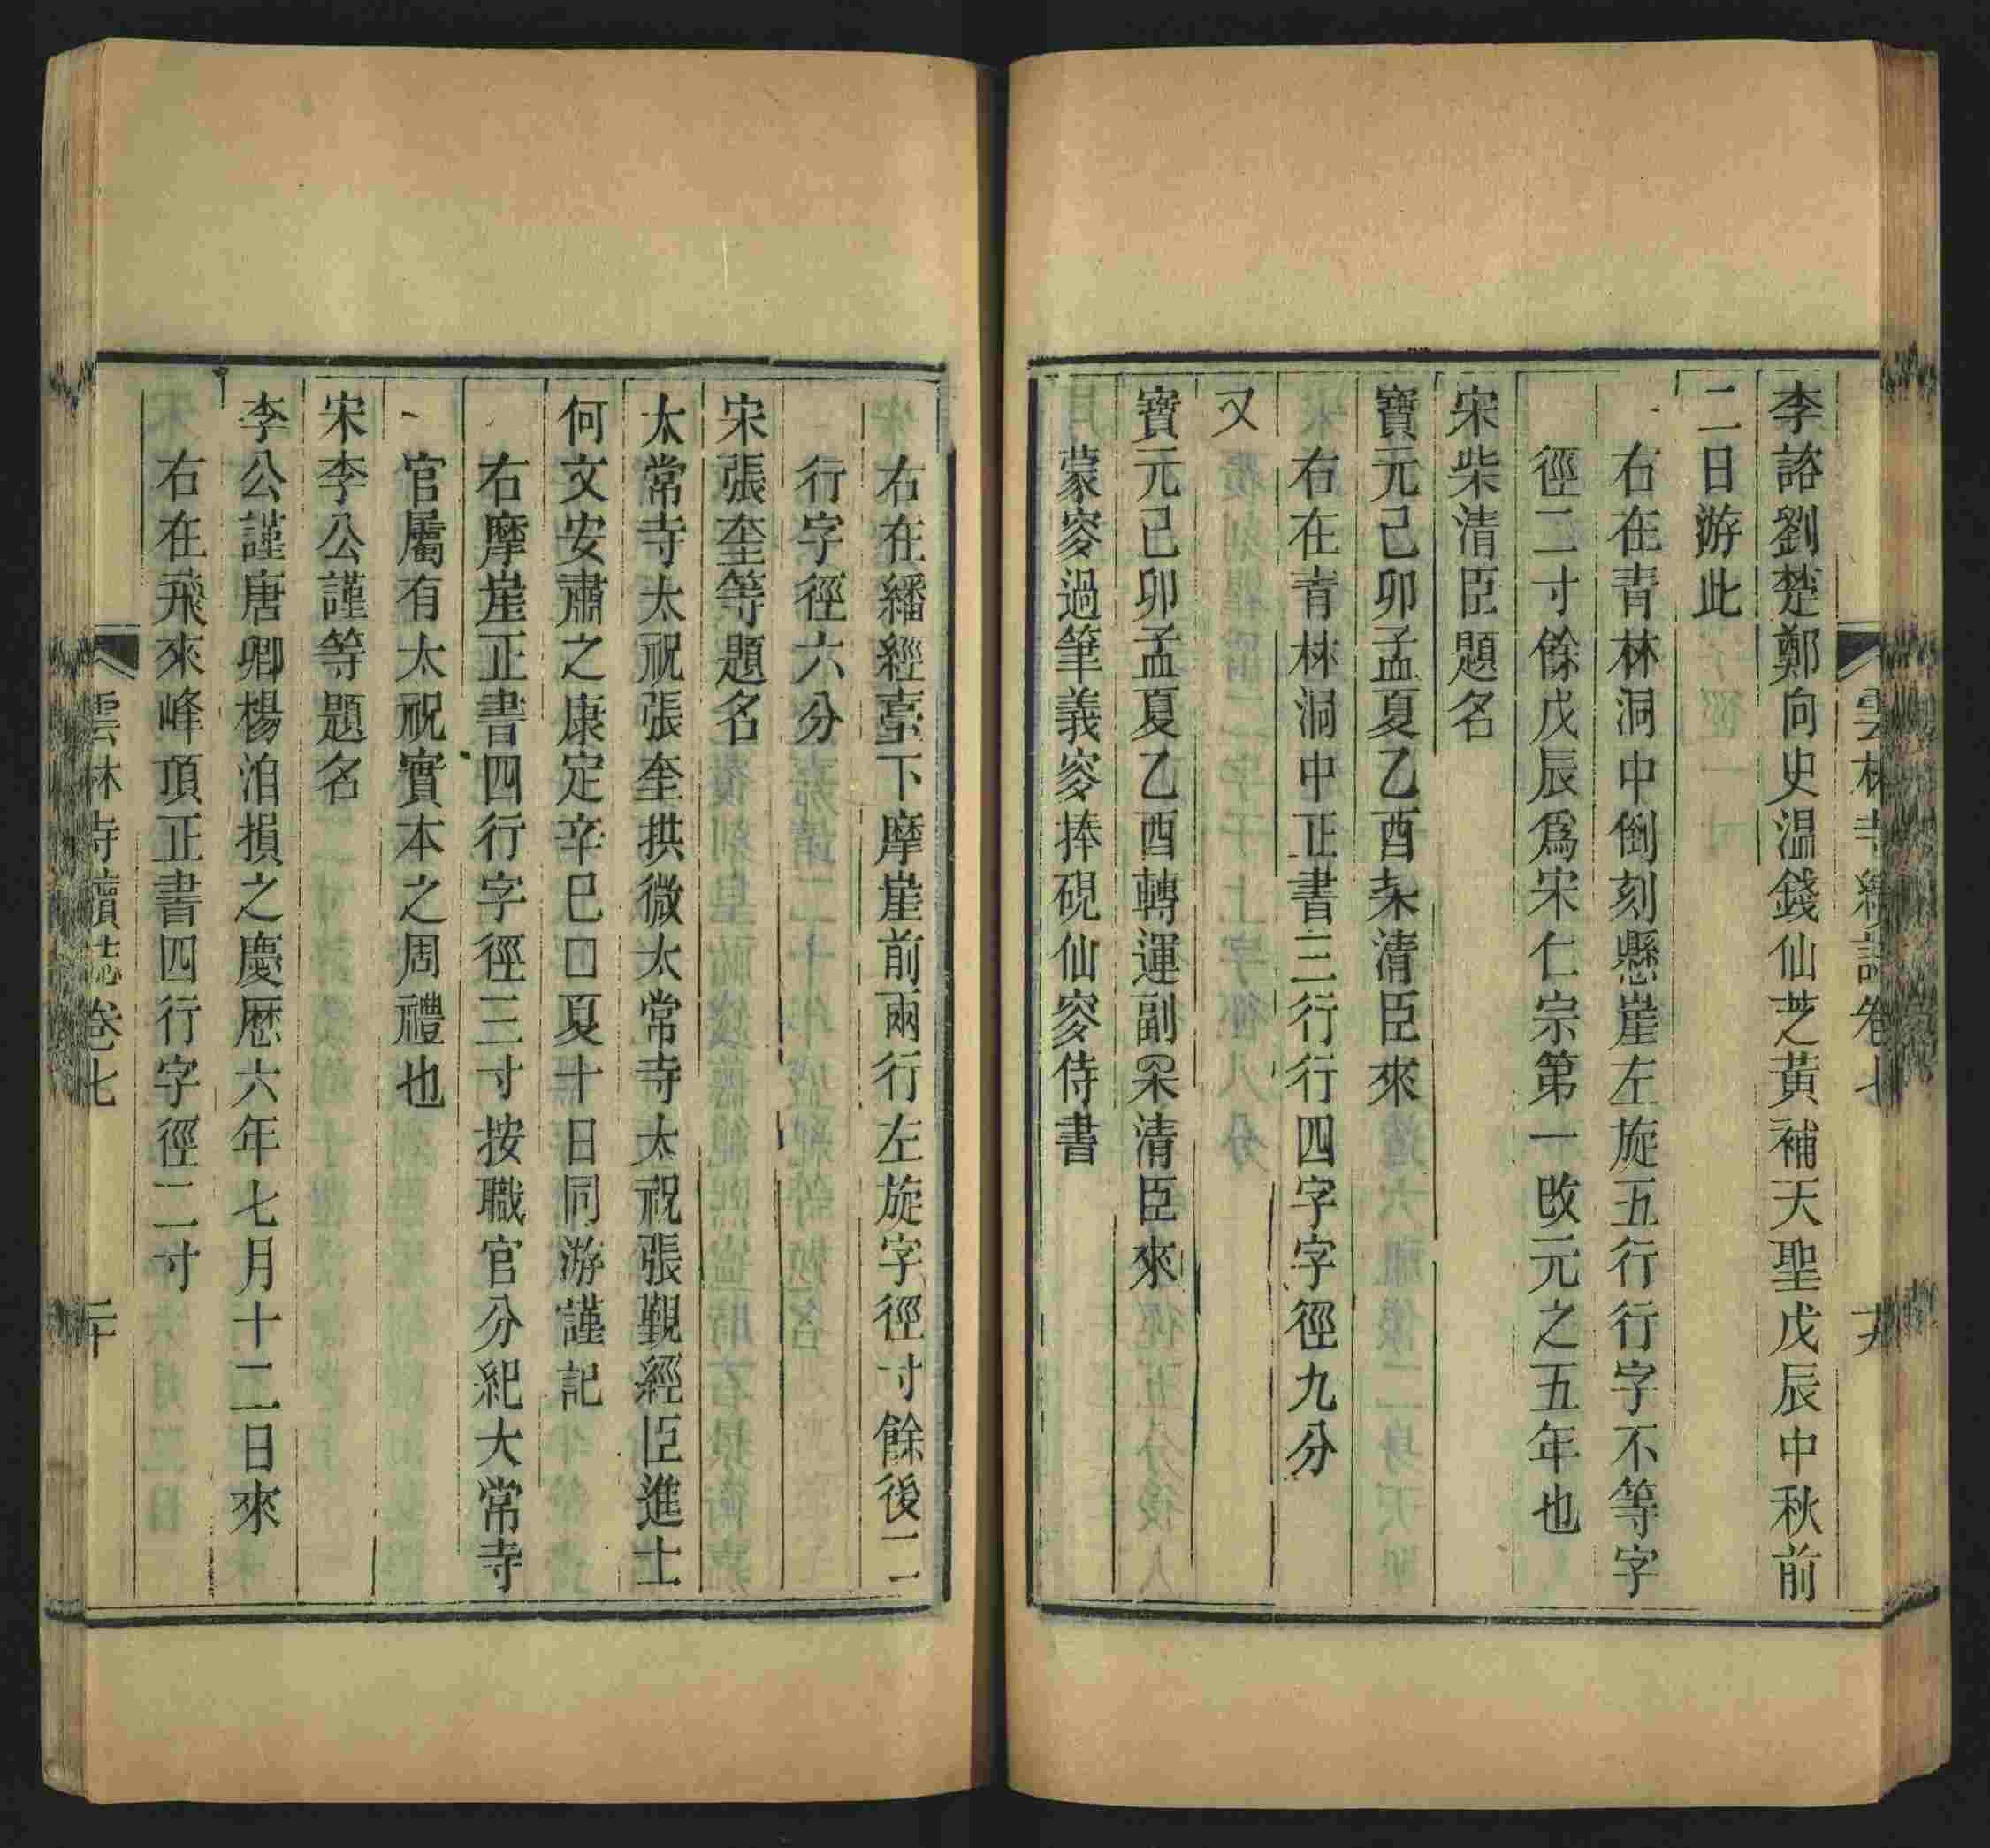 李諮劉楚鄭向史温錢仙芝黃補天聖戊辰中秋前
二日游此
右在青林洞中倒刻懸崖左旋五行行字不等字
徑二寸餘戊辰爲宋仁宗第一改元之五年也
宋柴清臣題名
寶元己卯孟夏乙酉枽清臣來
右在青林洞中正書三行行四字字徑九分
又
寶元己卯孟夏乙酉轉運副清臣來
蒙穸過筆義穸捧硯仙穸侍書
雲林寺續誌卷七
十九
右在繙經臺下摩崖前兩行左旋字徑寸餘後二
行字徑六分
宋張奎等題名
太常寺太祝張奎拱微太常寺太祝張覲經臣進士
何文安肅之康定辛巳□夏十日同游謹記
右摩崖正書四行字徑三寸按職官分紀大常寺
官屬有太祝實本之周禮也
宋李公謹等題名
李公謹唐卿楊洎損之慶厯六年七月十二日來
右在飛來峰頂正書四行字徑二寸
雲林寺續誌卷七
二十